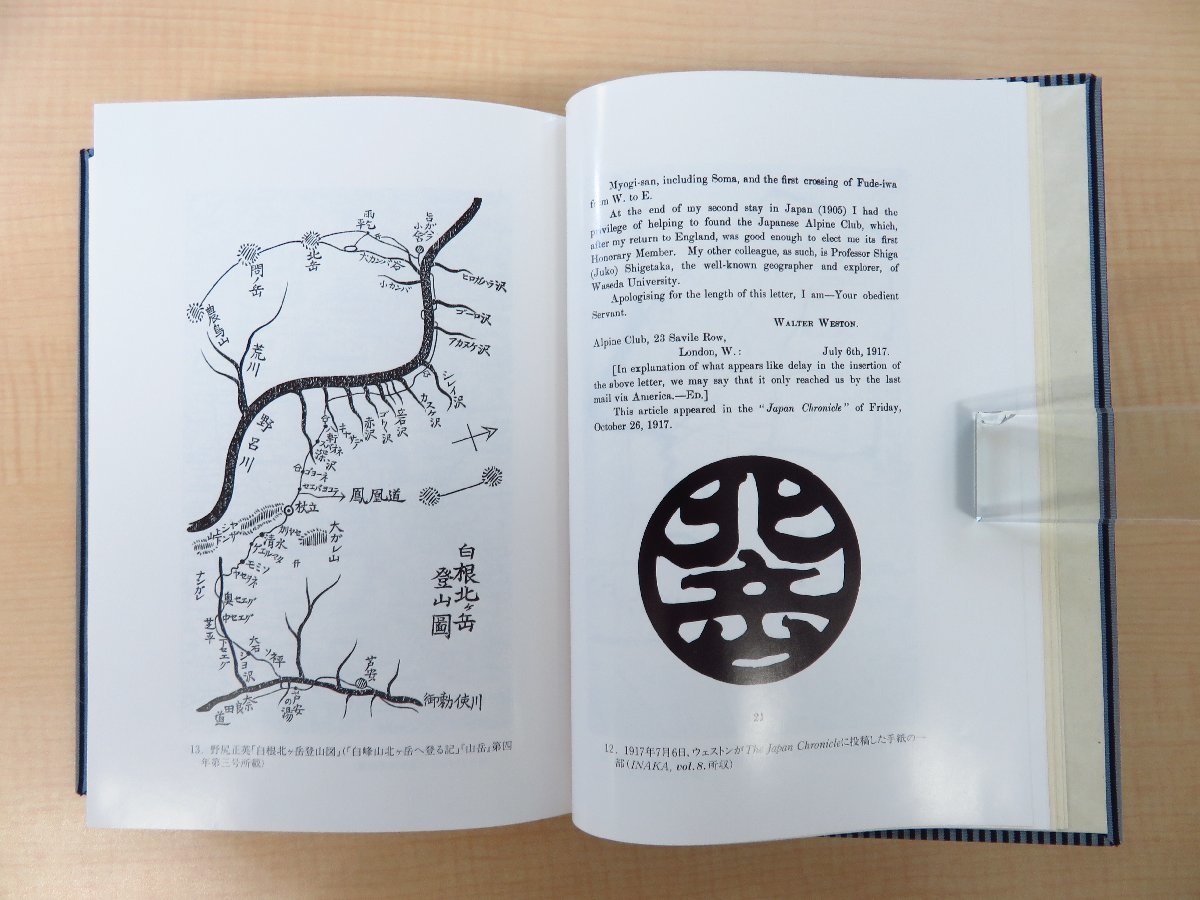 雨乾平
旨ガラ小舍
北岳
間ノ岳
農鳥山
大カンバ谷
小カンバ
ヒロガハラ沢
ゴーロ沢
アカヌケ沢
シレイ沢
カスケ沢
岩沢
ゴリ〱沢
赤沢
荒川
野呂川
深沢
ゴヨーネ
鳳凰道
杖立
大ガレ山
清水
ケエルマタ
モミソ
ヤセヲネ
ナンガレ
奥セエグ
中セエグ
下セエグ
芝平
大石
芦安
芦安の湯
奈良田道
御勅使川
白根北ヶ岳
登山圖
13. 野尻正英「白根北ヶ岳登山図」(「白峰山北ヶ岳へ登る記」『山岳』第四
年第三号所載)
Myogi-san, including Soma, and the first crossing of Fude-iwa
from W. to E.
At the end of my second stay in Japan (1905) I had the
privilege of helping to found the Japanese Alpine Club, which,
after my return to England, was good enough to elect me its first
Honorary Member. My other colleague, as such, is Professor Shiga
(Juko) Shigetaka, the well-known geographer and explorer, of
Waseda University.
Apologising for the length of this letter, I am—Your obedient
Servant.
WALTER WESTON.
Alpine Club, 23 Savile Row,
London, W.: July 6th, 1917.
[In explanation of what appears like delay in the insertion of
the above letter, we may say that it only reached us by the last
mail via America.—ED.]
This article appeared in the "Japan Chronicle" of Friday,
October 26, 1917.
12. 1917年7月6日、ウェストンがThe Japan Chronicleに投稿した手紙の一
部(INAKA, vol. 8. 所収)